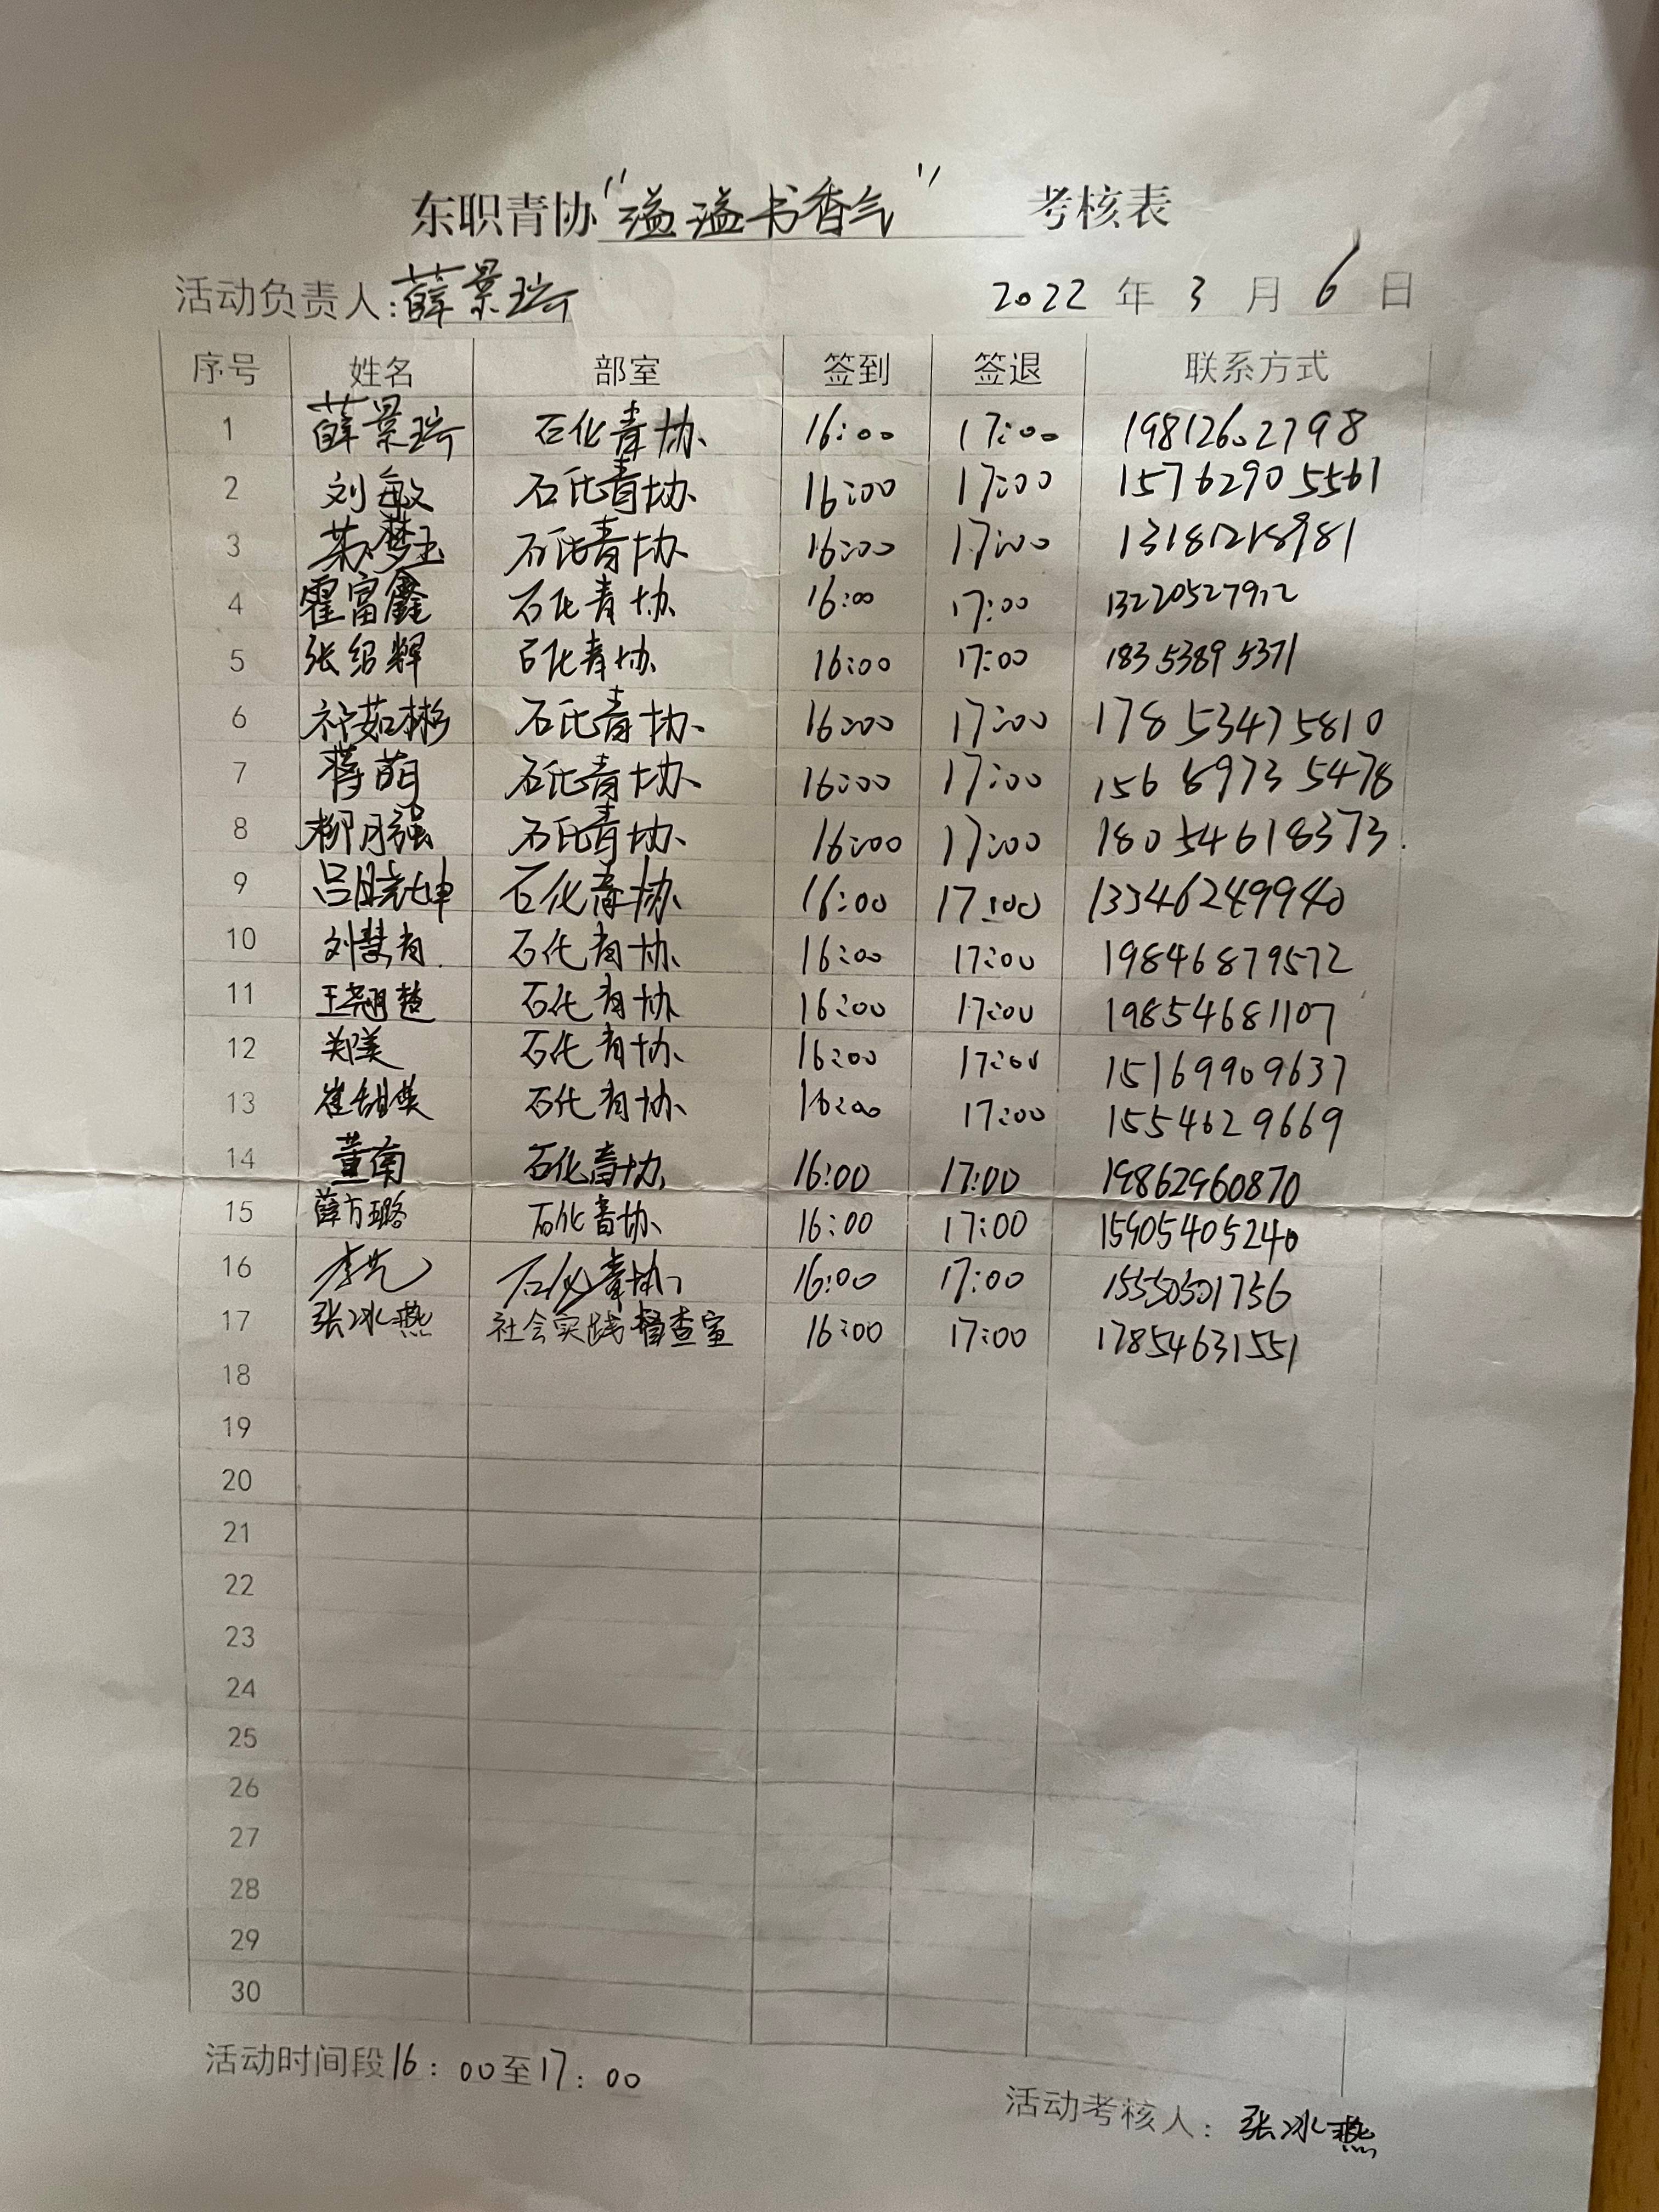 东职青协“溢溢书香气”考核表
活动负责人:薛景瑞 2022 年 3 月 6 日
序号 姓名 部室 签到 签退 联系方式
1 薛景瑞 石化青协 16:00 17:00 19812602798
2 刘敏 石化青协 16:00 17:00 15762905561
3 梦玉 石化青协 16:00 17:00
4 霍富鑫 石化青协 16:00 17:00
5 张绍辉 石化青协 16:00 17:00 18353895371
6 祁茹彬 石化青协 16:00 17:00 17853475810
7 蒋萌 石化青协 16:00 17:00 15689735478
8 柳月强 石化青协 16:00 17:00 18054618373.
9 吕晓坤 石化青协 16:00 17:00 13346249940
10 刘慧青 石化青协 16:00 17:00 19846879572
11 王翘楚 石化青协 16:00 17:00 19854681107
12 郑美 石化青协 16:00 17:00 15169909637
13 崔甜英 石化青协 16:00 17:00 1554629669
14 董南 石化青协 16:00 17:00 19862960870
15 薛方璐 石化青协 16:00 17:00 15905405240
16 李先 石化青协 16:00 17:00 15550501756
17 张冰燕 社会实践督查室 16:00 17:00 17854631551
18
19
20
21
22
23
24
25
26
27
28
29
30
活动时间段16:00至17:00
活动考核人:张冰燕